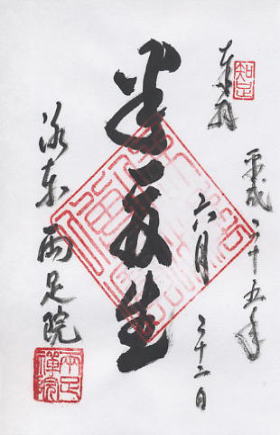 奉拝
知足
平成二十五年
六月二十二日
半夏生
洛東 両足院
両足禅院